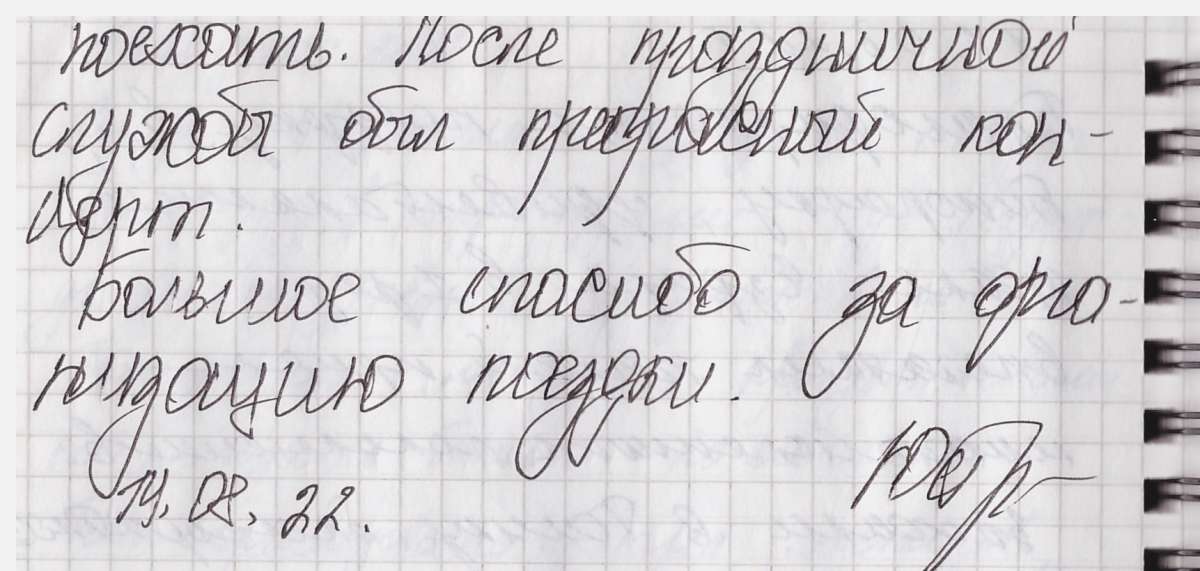 поехать. После праздничной
службы был прекрасный кон-
церт.
Большое спасибо за орга-
низацию поездки.
14.08.22.